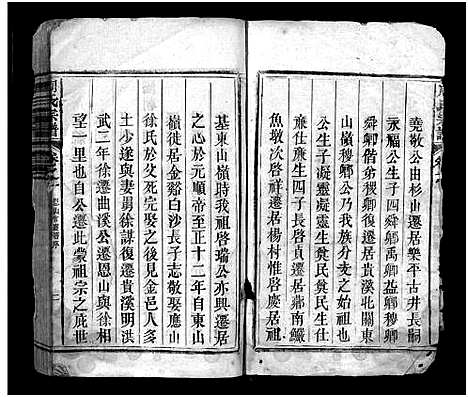 堯敬公由杉山遷居樂平古井長嗣
永福公生子四舜卿禹卿益卿稷卿
舜卿偕弟稷卿復遷居貴溪北關東
山嶺穆卿公乃我族分支之始祖也
公生子凝靈凝靈生貧民生仕
吉仕庶生四子長啓貞遷居鄱南鱖
魚墩次啓祥遷居楊村惟啓慶居祖
基東山嶺時我祖啓瑞公亦興遷居
之心於元順帝至正十二年自東山
嶺徙居金谿白沙長子志敬娶應山
徐氏於父死完娶之後見金邑人多
土少遂與妻舅徐謀復遷貴溪明洪
武三年徐遷曲溪公遷恩山與徐相
望一里也自公遷此蒙祖宗之庇世
周氏宗譜